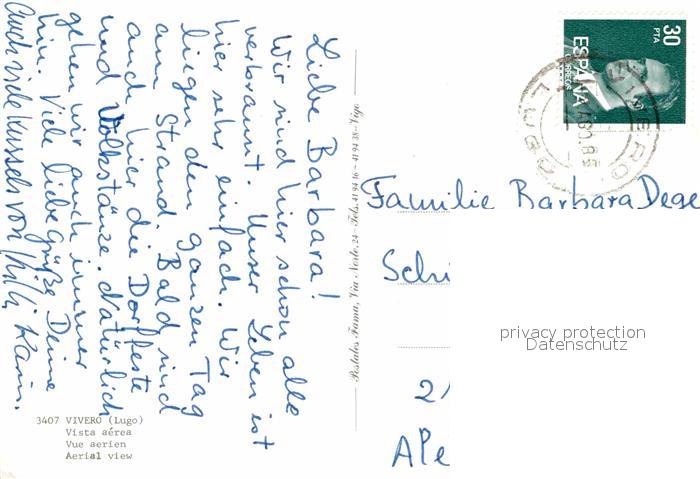 Liebe Barbara!
Wir sind hier schon alle
verbrannt. Unser Leben ist
hier sehr einfach. Wir
liegen den ganzen Tag
am Strand. Bald sind
auch hier die Dorffeste
und Volkstänze. Natürlich
gehen wir auch immer
hin. Viele liebe Grüße Deine
Karin.
Auch viele Kussels von
3407 VIVERO (Lugo)
Vista aérea
Vue aerien
Aerial view
Postales Fama, Via Norte, 24 - Tels. 41 94 16 - 41 94 38 - Vigo
30
PTA
ESPAÑA
CORREOS
Familie Barbara Dege
Schi
2
APe
privacy protection
Datenschutz